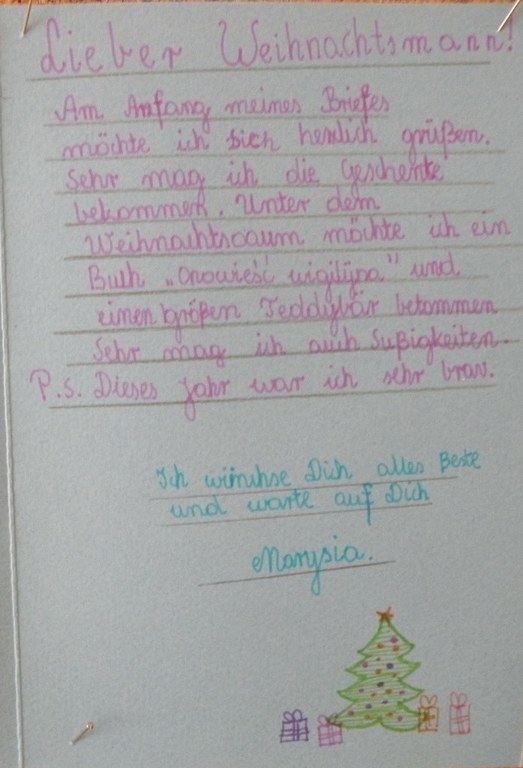 Lieber Weihnachtsmann!
Am Anfang meines Briefes
möchte ich Dich herzlich grüßen.
Sehr mag ich die Geschenke
bekommen. Unter dem
Weihnachtsbaum möchte ich ein
Buch „Opowieść wigilijna" und
einen großen Teddybär bekommen
Sehr mag ich auch Süßigkeiten.
P.S. Dieses Jahr war ich sehr brav.
Ich wünchse Dich alles Beste
und warte auf Dich
Marysia.